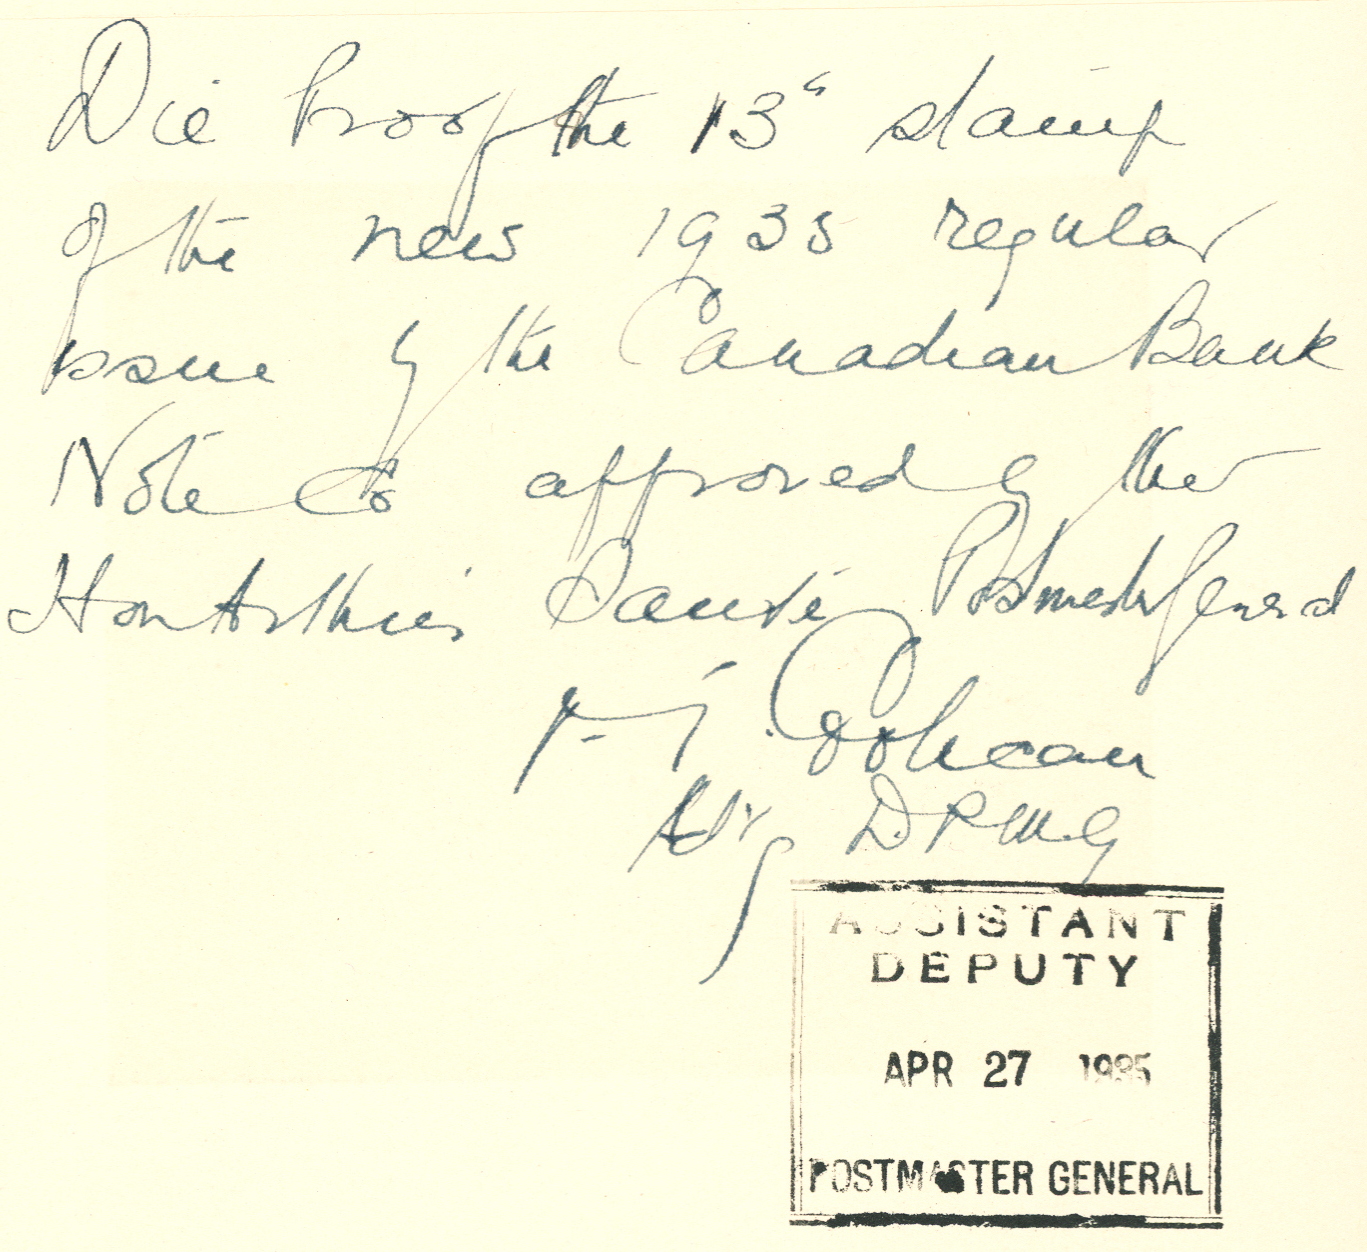 Die Proof the 13c stamp
of the new 1935 regular
issue by the Canadian Bank
Note Co approved by the
Hon Arthur Sauvé Postmaster General
J. Coolican
Actg DPMG
ASSISTANT
DEPUTY
APR 27 1935
POSTMASTER GENERAL